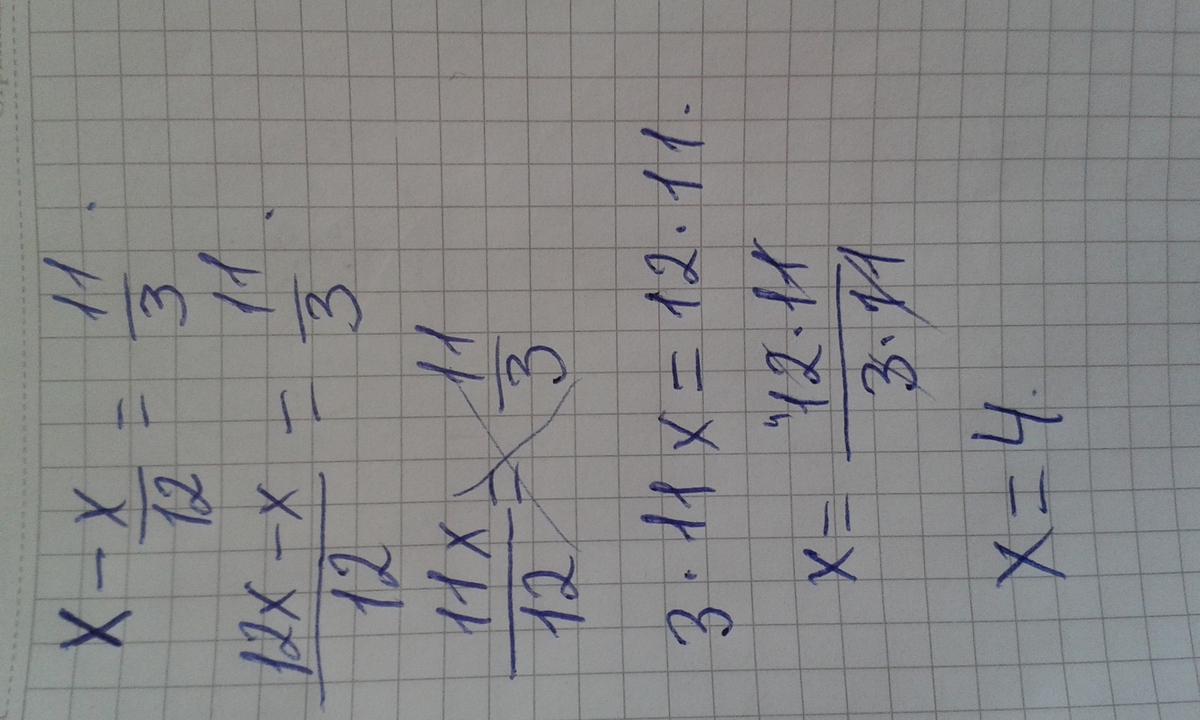 x - x/12 = 11/3.
12x - x/12 = 11/3.
11x/12 = 11/3
3 · 11 x = 12 · 11.
x = 4 12 · 11/3 · 11
x = 4.